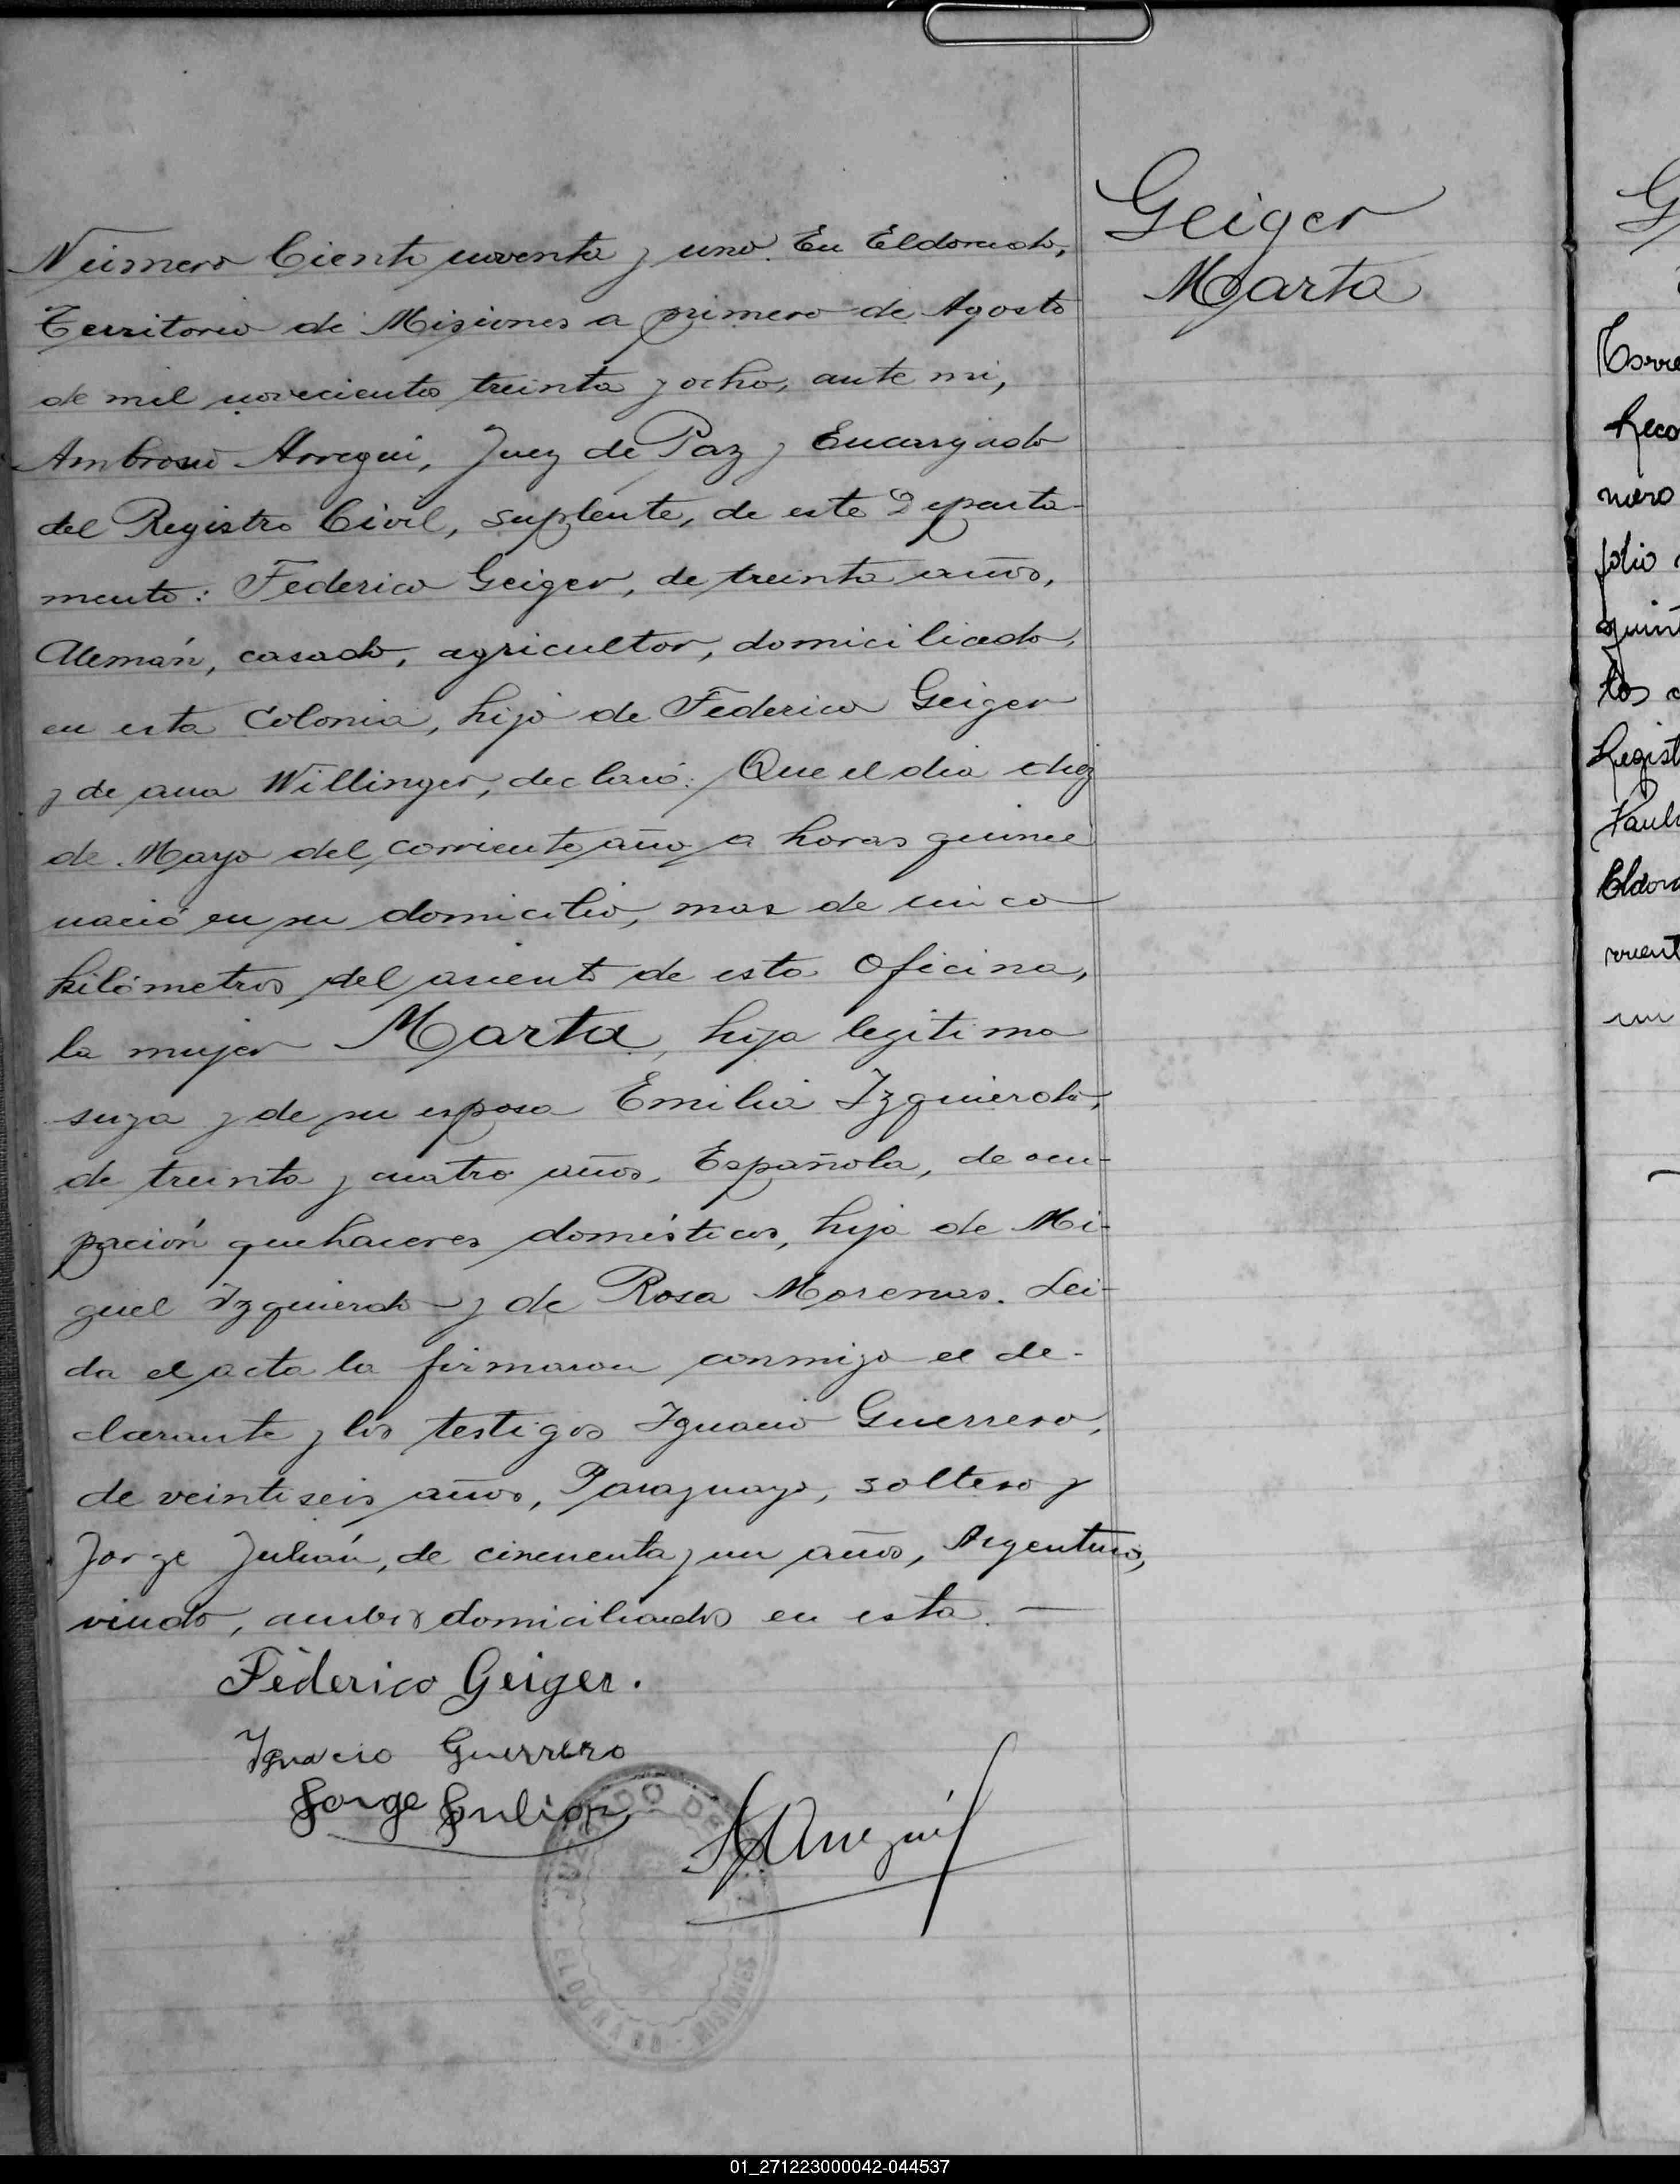 Geiger
Marta
Número Ciento noventa y uno. En Eldorado,
Territorio de Misiones a primero de Agosto
de mil novecientos treinta y ocho, ante mi,
Ambrosio Arregui, Juez de Paz y Encargado
del Registro Civil, suplente, de este Departa-
mento: Federico Geiger, de treinta años,
Alemán, casado, agricultor, domiciliado,
en esta Colonia, hijo de Federico Geiger
y de ana Willinger, declaró: Que el dia diez
de Mayo del corriente año a horas quince
nació en su domicilio, mas de cinco
kilómetros del asiento de esta Oficina,
la mujer Marta, hija legitima
suya y de su esposa Emilia Izquierdo,
de treinta y cuatro años, Española, de ocu-
pación quehaceres domésticos, hija de Mi-
guel Izquierdo y de Rosa Morenas. Lei-
da el acta la firmaron conmigo el de-
clarante y los testigos Ignacio Guerrero,
de veintiseis años, Paraguayo, soltero y
Jorge Julián, de cincuenta y un años, Argentino,
viudo, ambos domiciliados en esta. —
Féderico Geiger.
Ignacio Guerrero
Jorge Julian
A Arregui
JUZGADO DE PAZ
ELDORADO - MISIONES
G
Torre
Reco
mero
folio
quint
tos
Regist
Paul
Eldor
ment
un
01_271223000042-044537